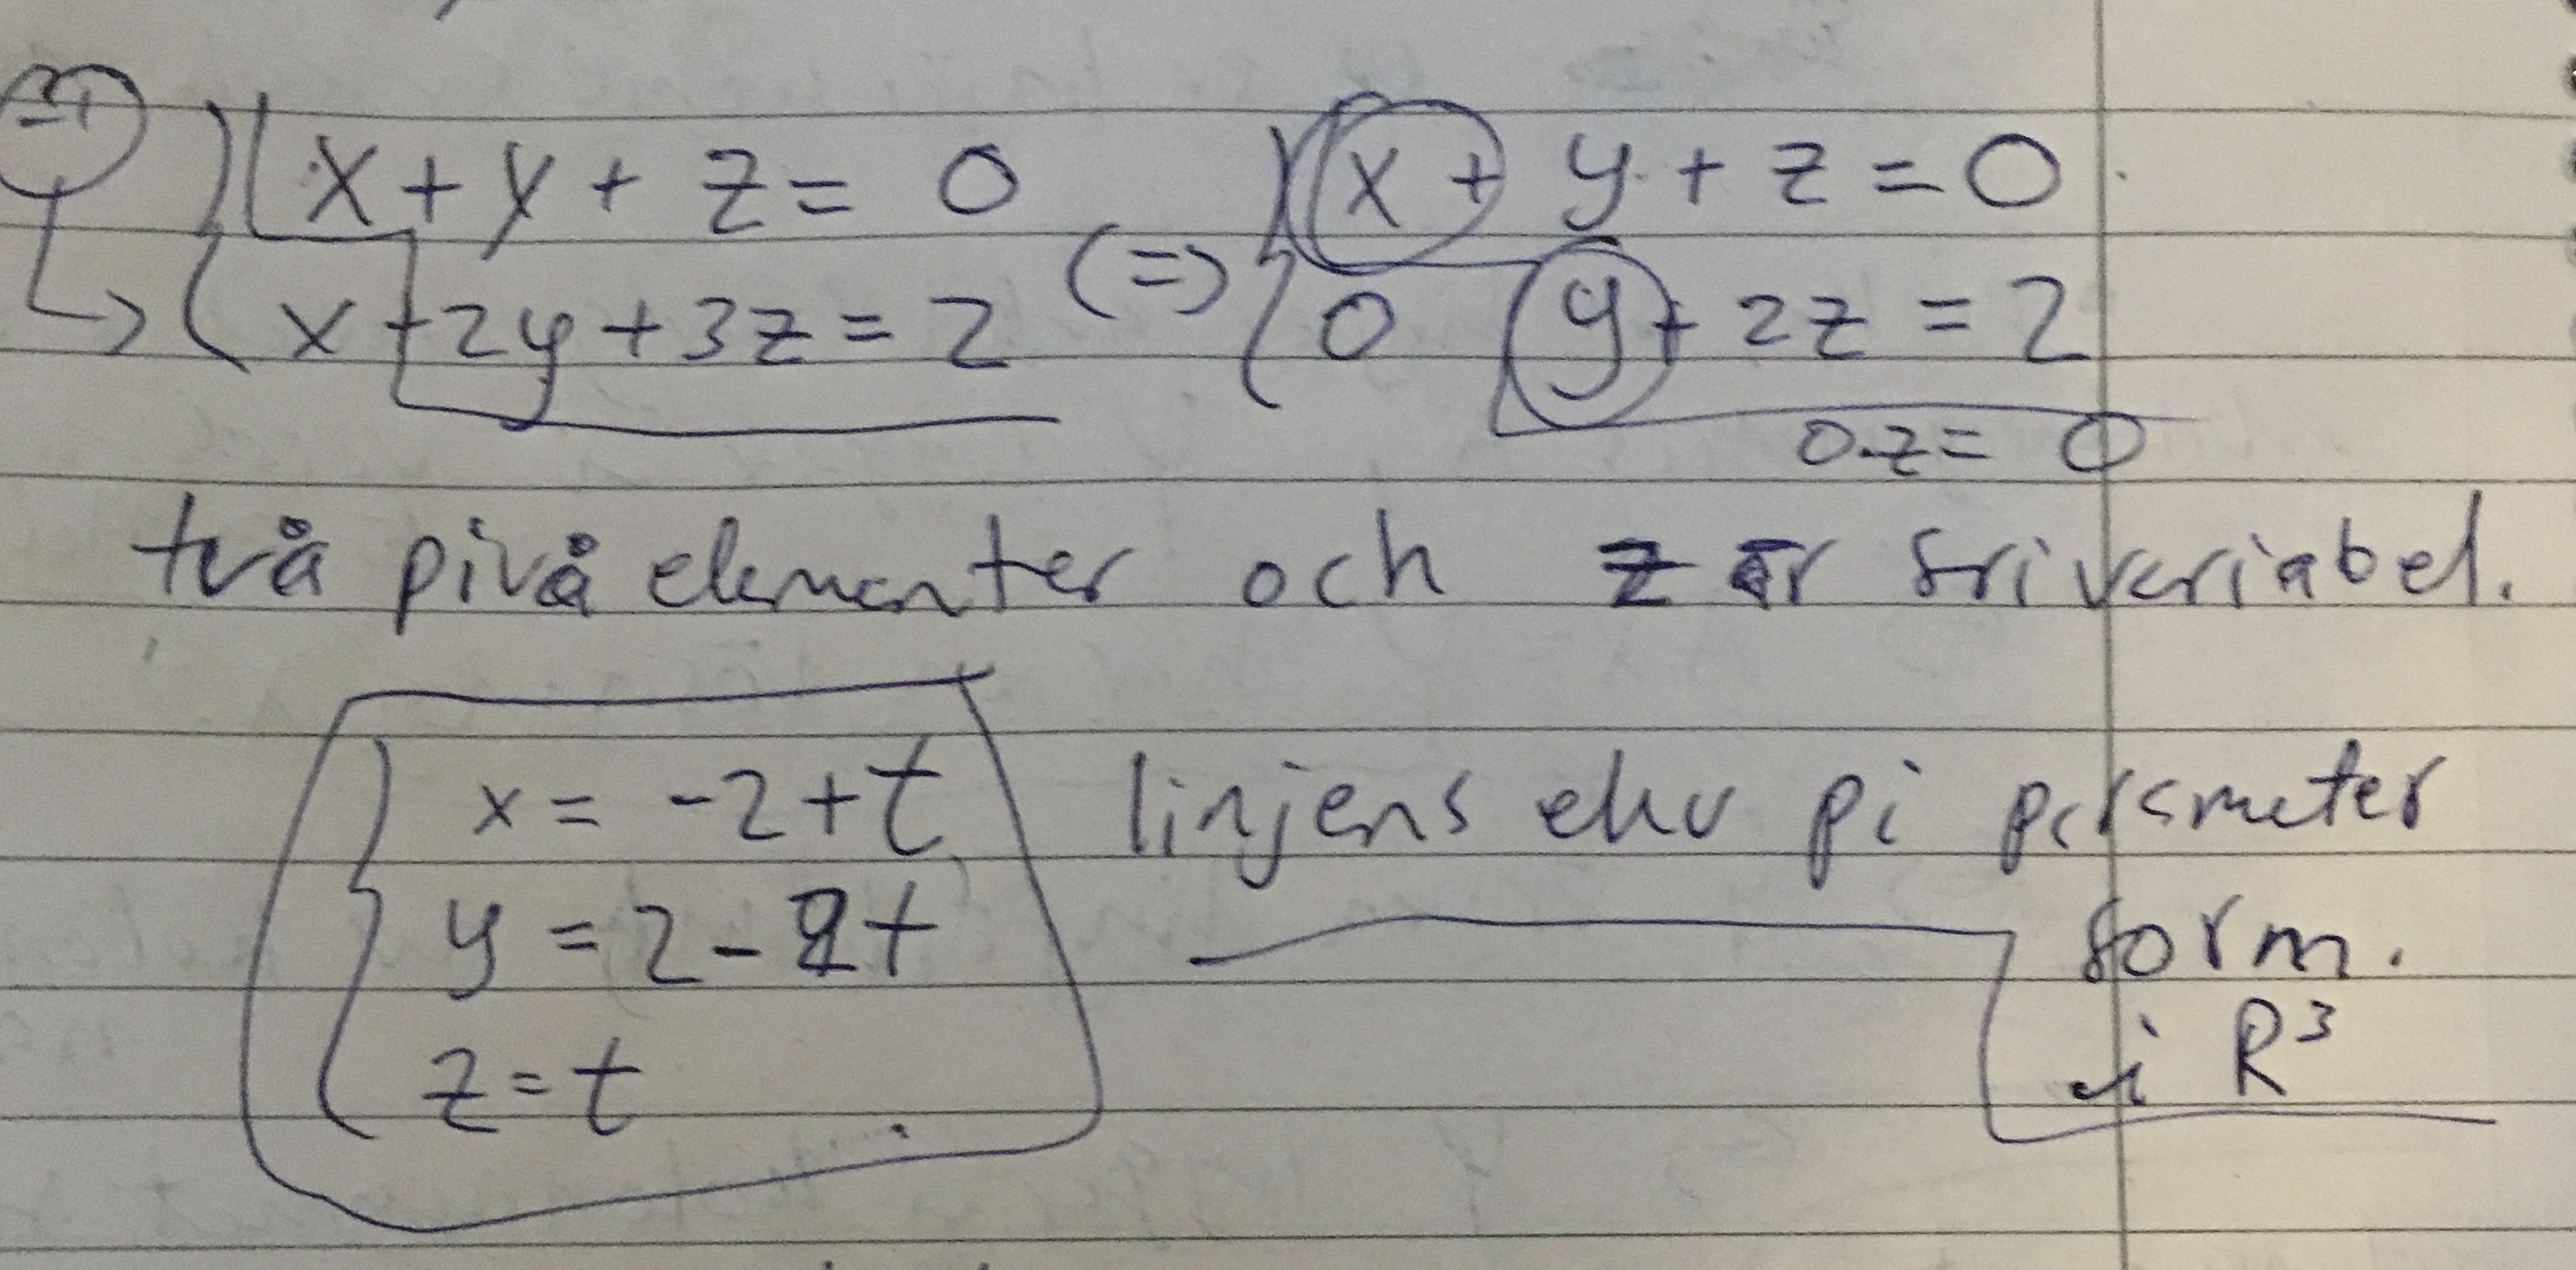 -1
x + y + z = 0 (=) x + y + z = 0
x + 2y + 3z = 2 0 y + 2z = 2
0·z = 0
två pivå elementer och z är fri variabel.
x = -2 + t linjens ekv på parameter
y = 2 - 2t form.
z = t i R³